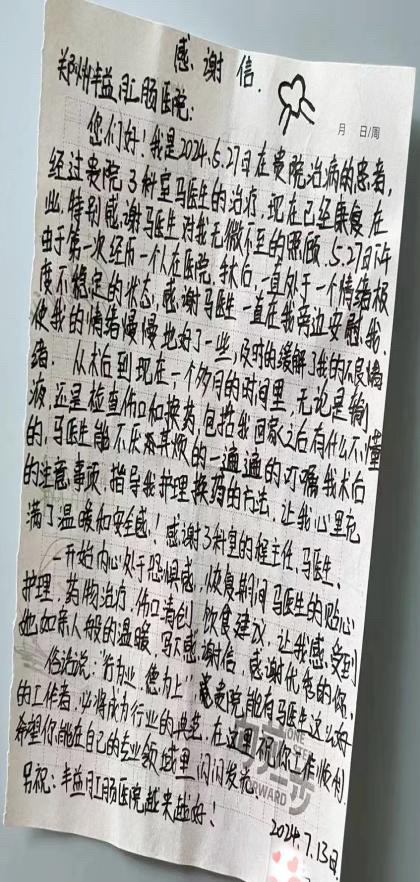 感谢信.
郑州丰益肛肠医院:
月 日/周
您们好!我是2024.5.27日在贵院治病的患者,
经过贵院3科室马医生的治疗,现在已经康复,在
此,特别感谢马医生对我无微不至的照顾.5.27日下午
由于第一次经历一个人在医院,手术后,一直处于一个情绪极
度不稳定的状态,感谢马医生一直在我旁边安慰我.
使我的情绪慢慢地好了一些,及时的缓解了我的不良情
绪.从术后到现在一个多月的时间里,无论是输
液,还是检查伤口和换药,包括我回家之后有什么不懂
的,马医生能不厌其烦的一遍遍的叮嘱我术后
的注意事项,指导我护理换药的方法,让我心里充
满了温暖和安全感!感谢3科室的程主任、马医生、
开始内心处于恐惧感,恢复期间马医生的贴心
护理、药物治疗、伤口清创、饮食建议,让我感受到
她如亲人般的温暖,写下感谢信,感谢优秀的你.
俗话说:"行为业,德为上"贵院能有马医生这么好
的工作者,必将成为行业的典范,在这里祝你工作顺利
希望你能在自己的专业领域里闪闪发光.
另祝:丰益肛肠医院越来越好!
FORWARD
2024.7.13日.